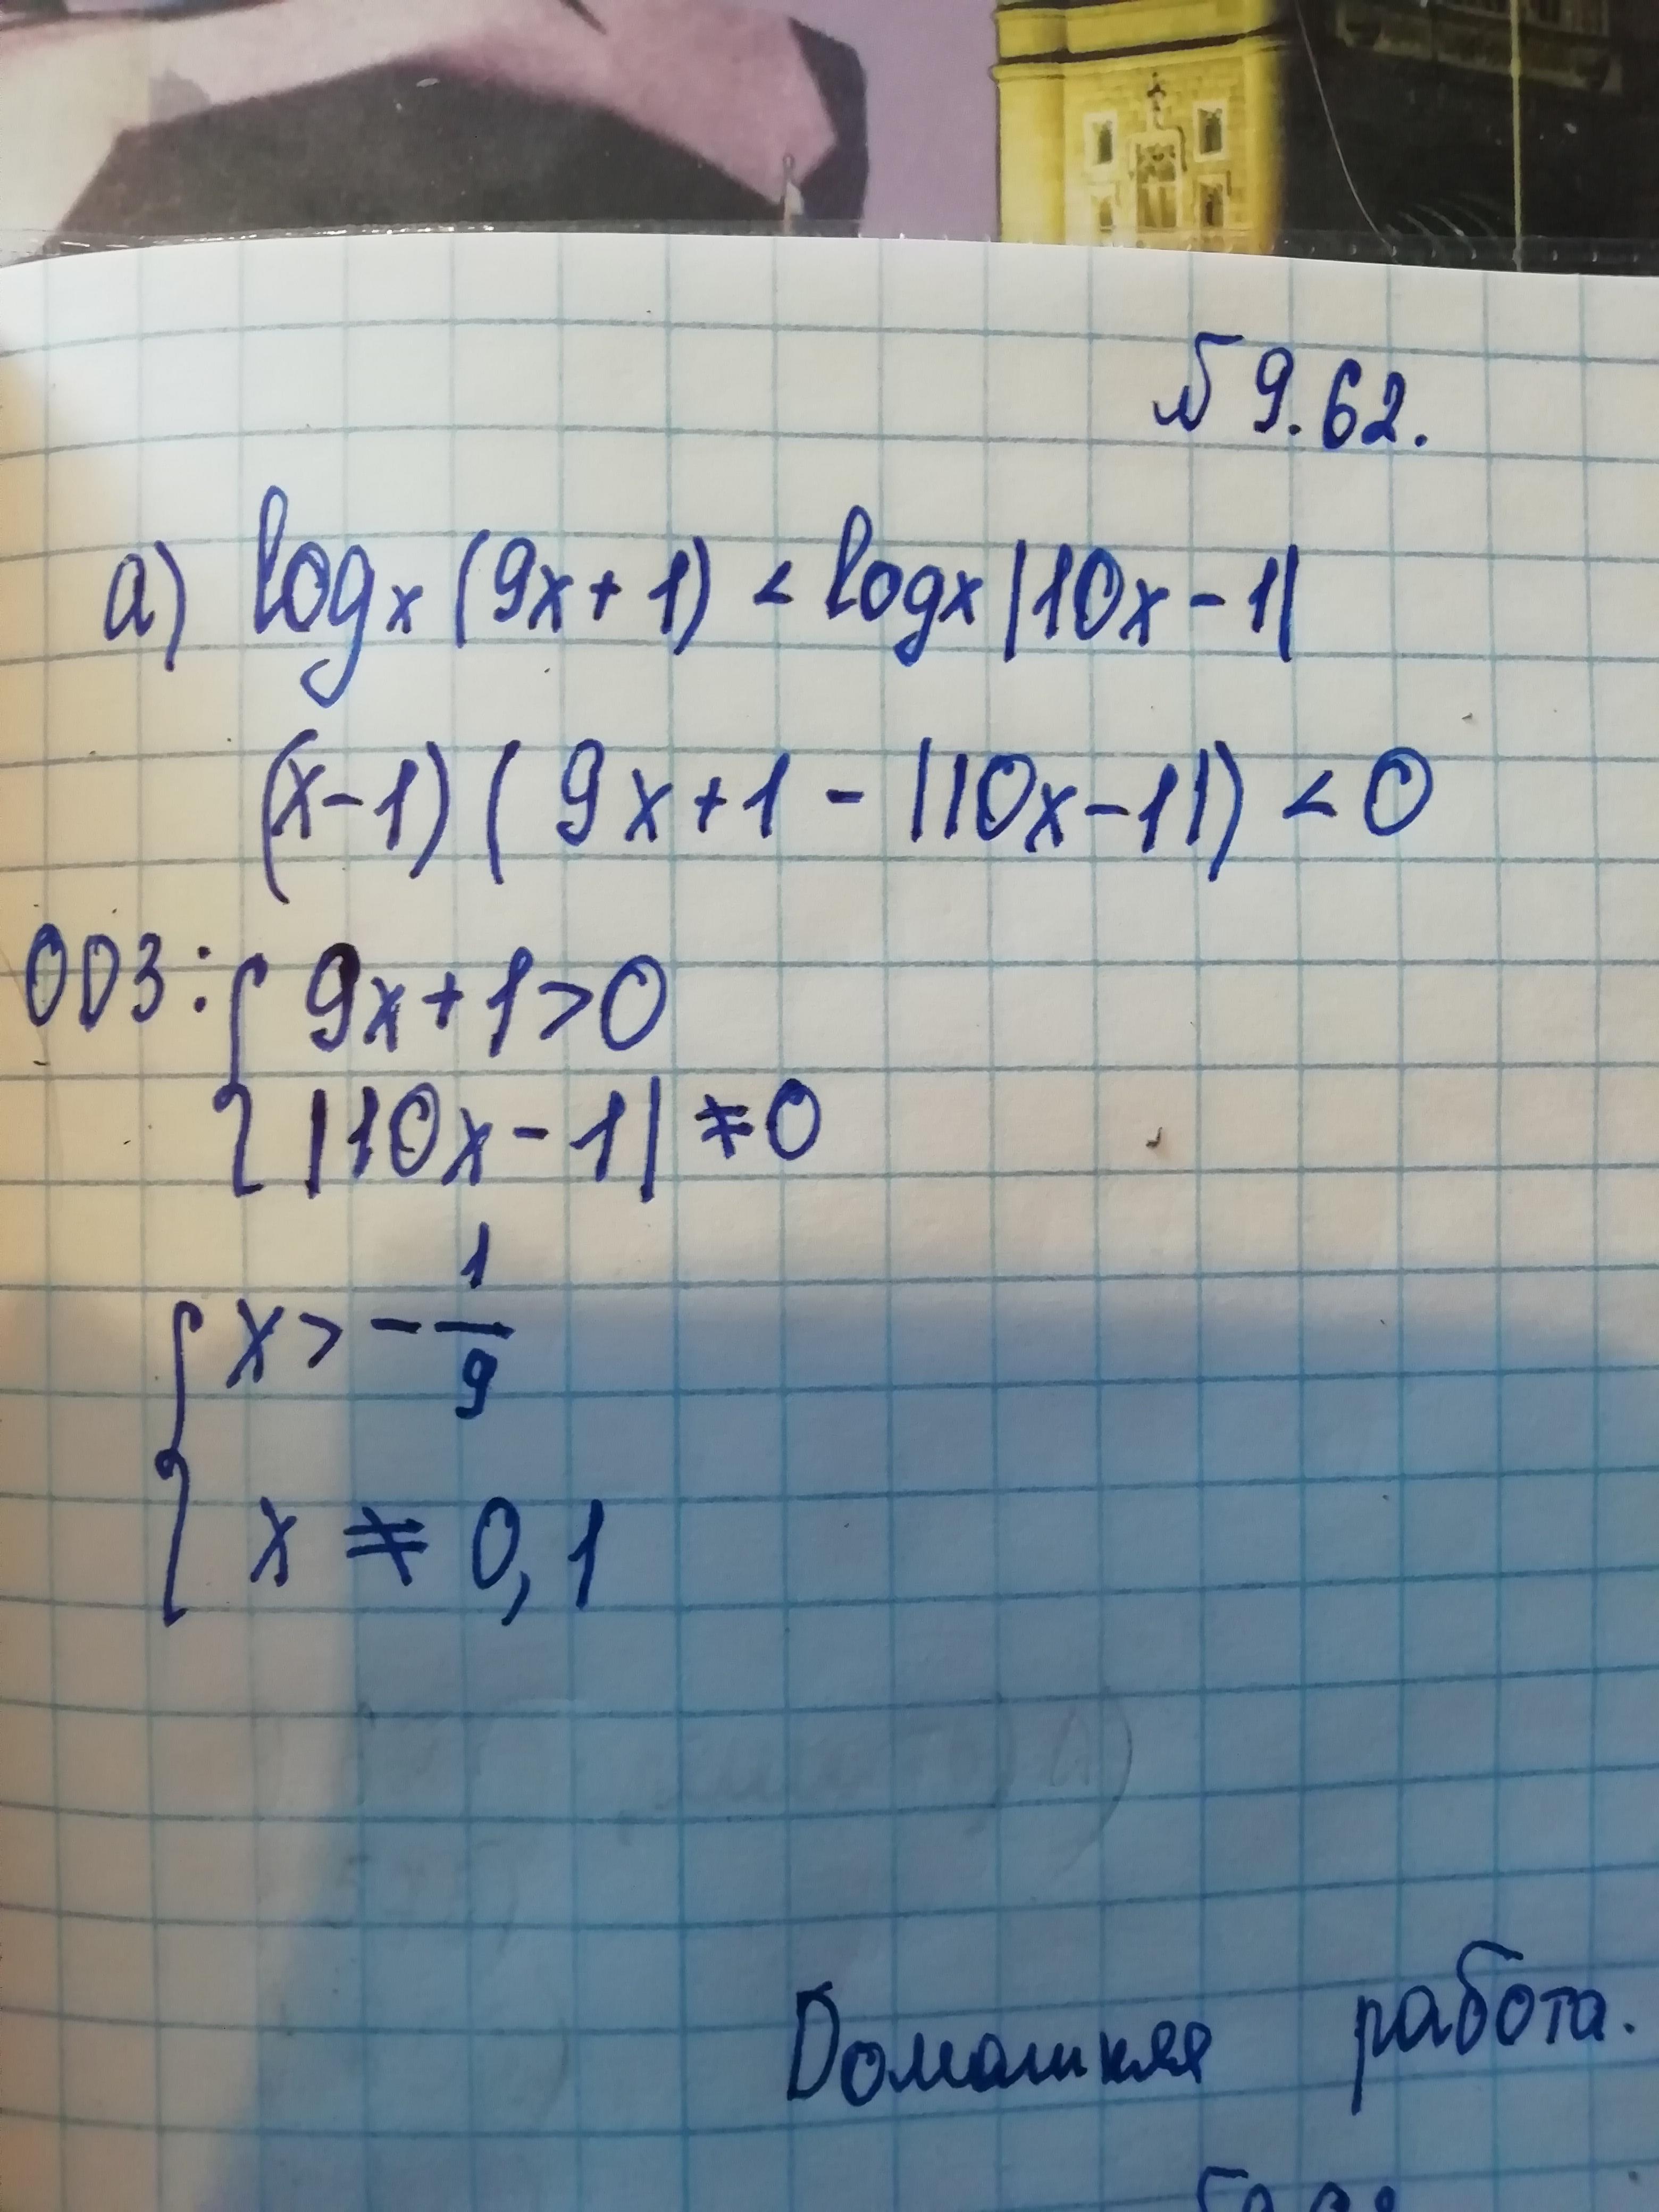 № 9.62.
а) logₓ (9x+1) < logₓ |10x-1|
(x-1)(9x+1-|10x-1|) < 0
ОДЗ: { 9x+1>0
|10x-1| ≠ 0
{ x > -1/9
x ≠ 0,1
Домашняя работа.